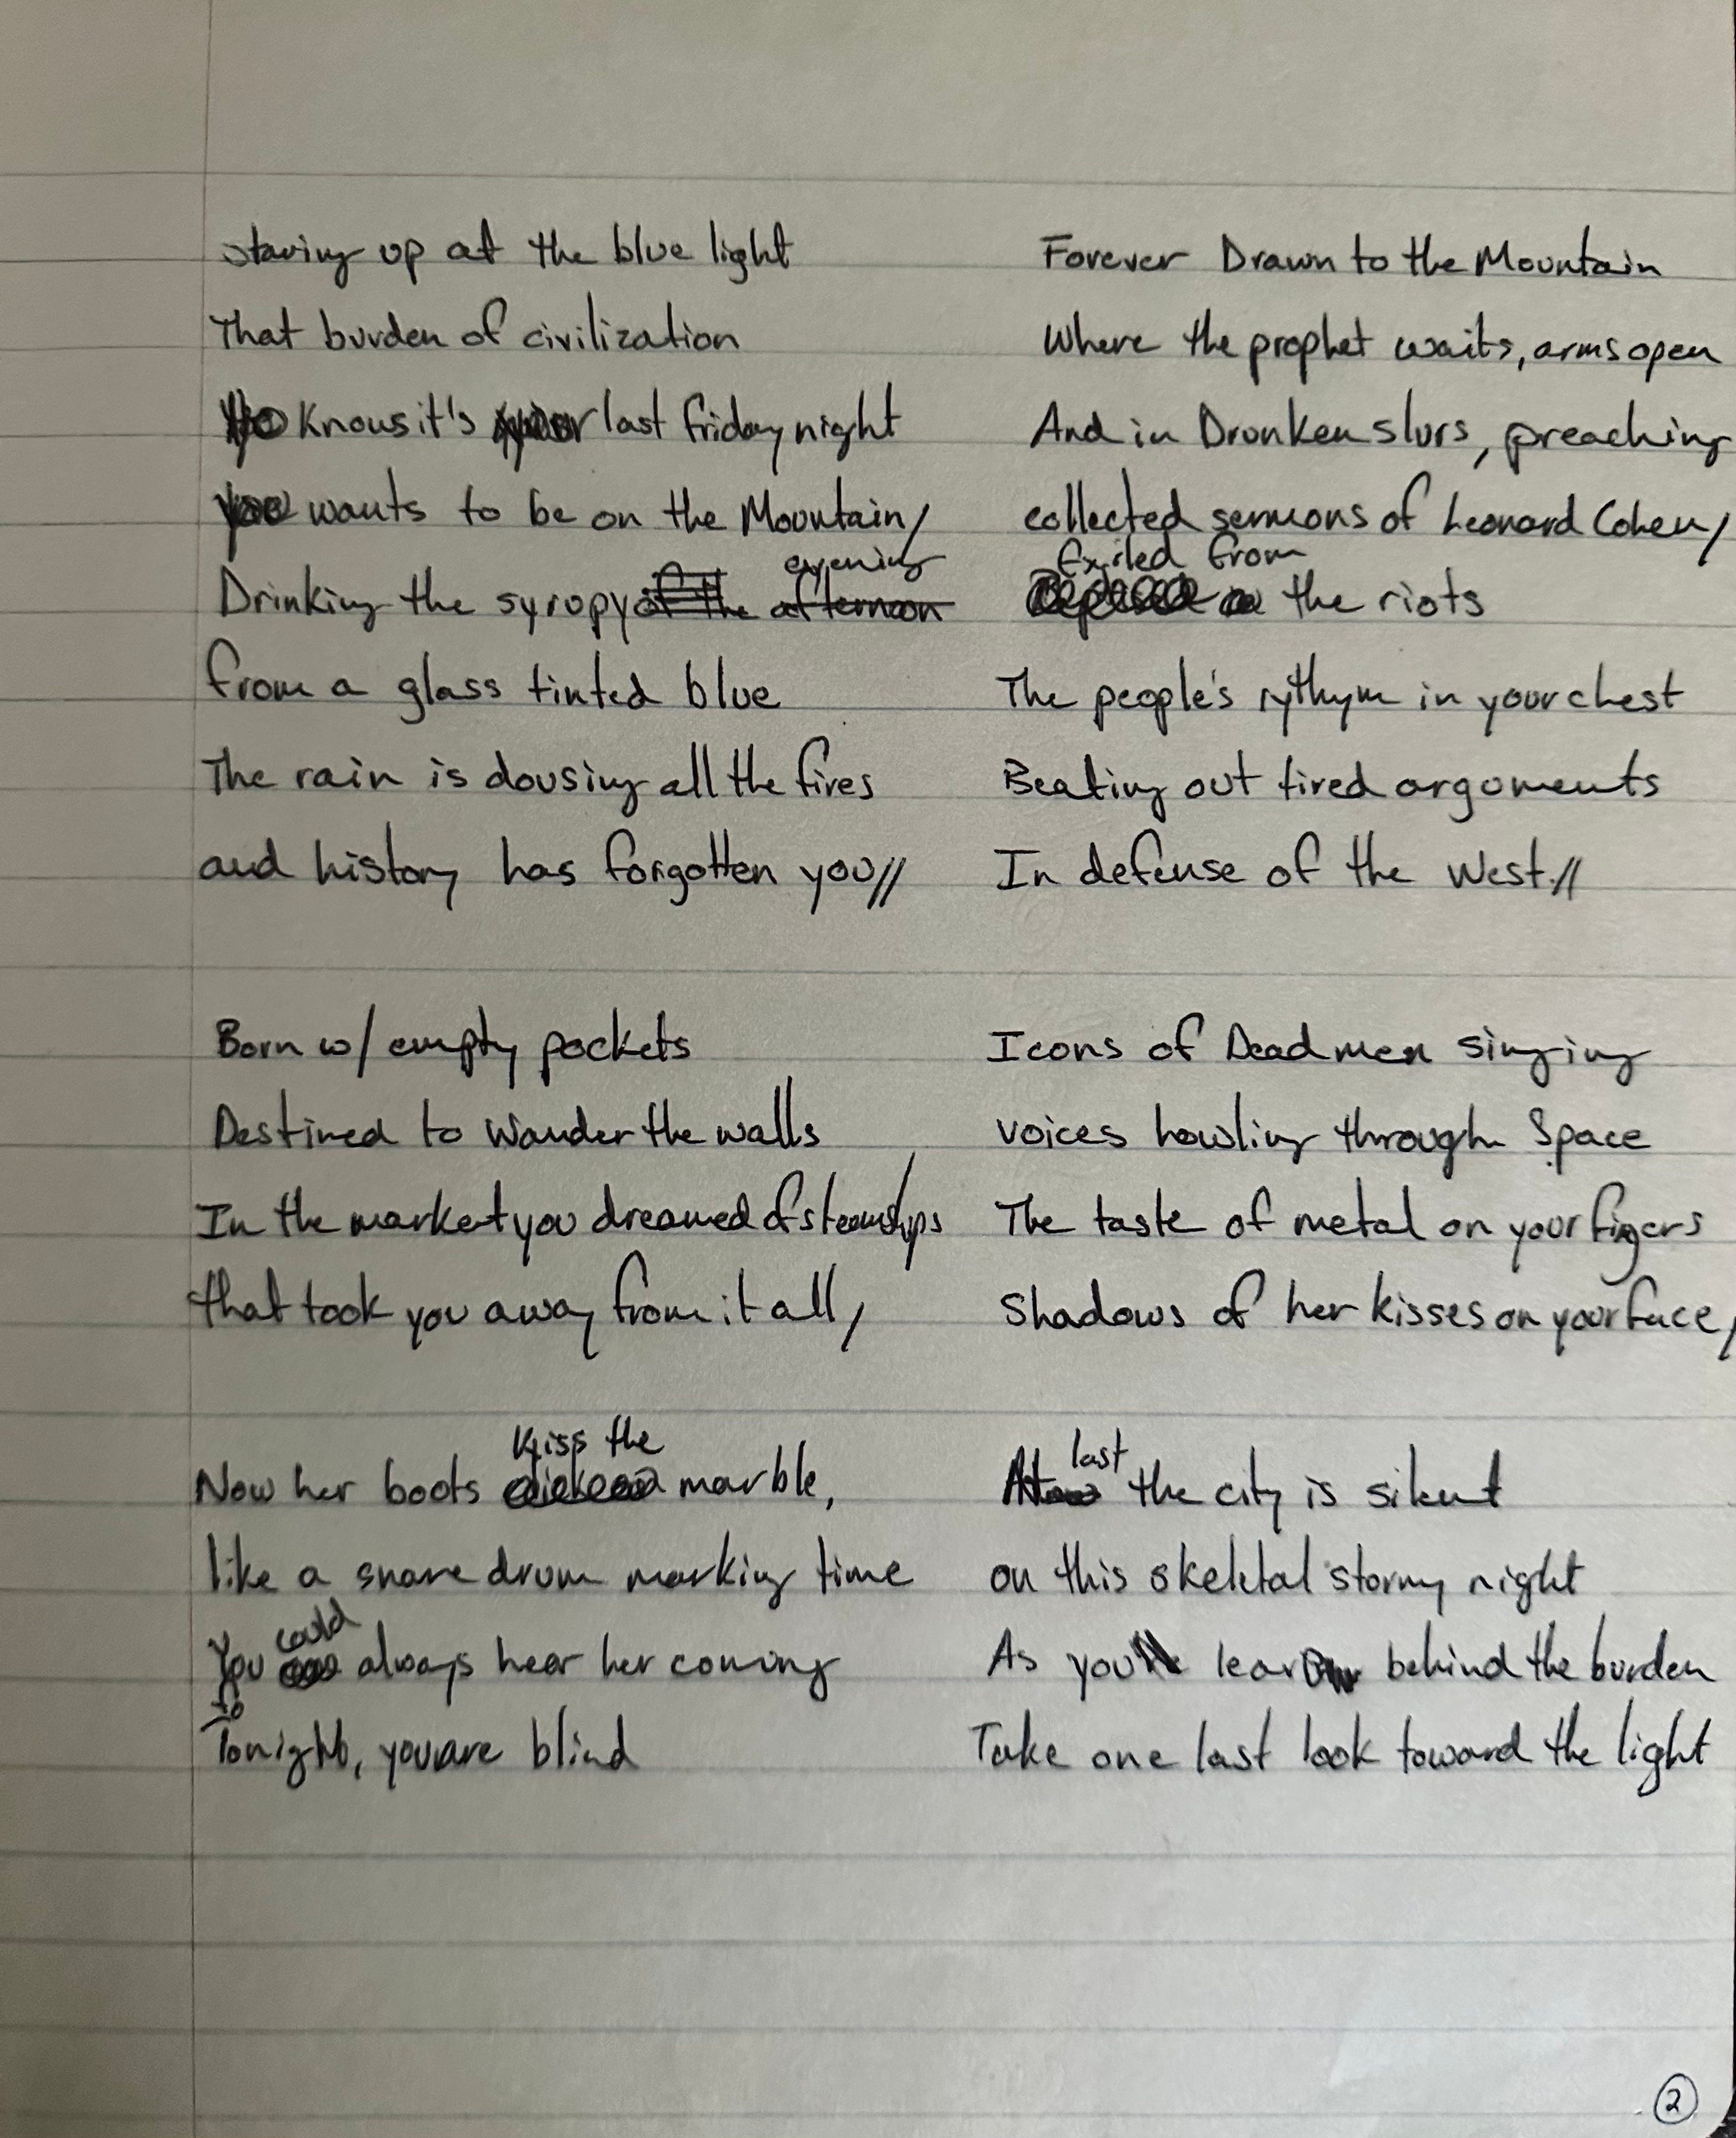 Staring up at the blue light
That burden of civilization
Knows it's last friday night
wants to be on the Mountain/
Drinking the syropy evening
from a glass tinted blue
The rain is dousing all the fires
and history has forgotten you//
Born w/ empty pockets
Destined to Wander the walls
In the market you dreamed of steamships
that took you away from it all/
Now her boots kiss the marble,
like a snare drum marking time
You could always hear her coming
Tonight, you are blind
Forever Drawn to the Mountain
Where the prophet waits, arms open
And in Drunken slurs, preaching
collected sermons of Leonard Cohen/
Exiled from the riots
The people's rythym in your chest
Beating out tired arguments
In defense of the West.//
Icons of Dead men singing
voices howling through Space
The taste of metal on your figers
Shadows of her kisses on your face/
At last the city is silent
on this skeletal stormy night
As you lean behind the burden
Take one last look toward the light
2